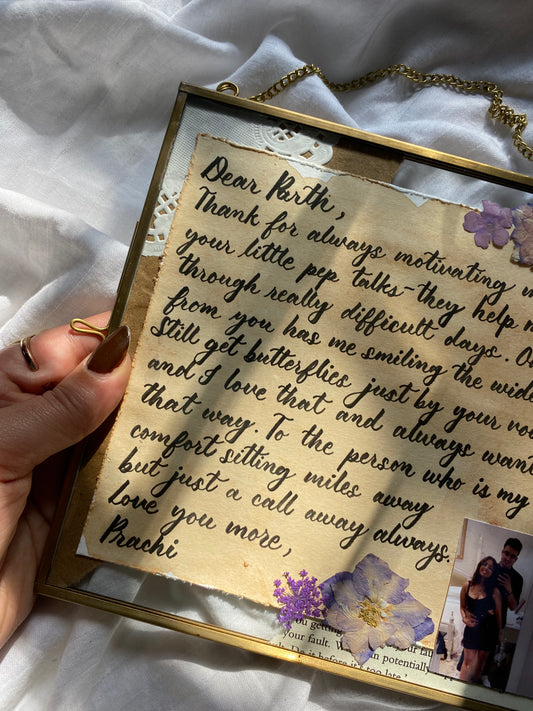 Dear Parth,
Thank for always motivating
your little pep talks - they help
through really difficult days.
from you has me smiling the
Still get butterflies just by your
and I love that and always want
that way. To the person who is my
comfort sitting miles away
but just a call away always.
Love you more,
Prachi
getting
your fault.
potentially
Do it before it's too late.